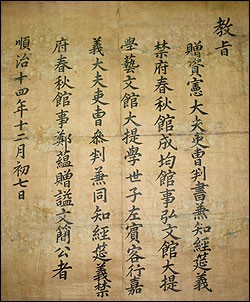 教旨
贈資憲大夫吏曹判書兼知經筵義
禁府春秋館成均館事弘文館大提
學藝文館大提學世子左賓客行嘉
義大夫吏曹參判兼同知經筵義禁
府春秋館事鄭蘊贈謚文簡公者
順治十四年十二月初七日